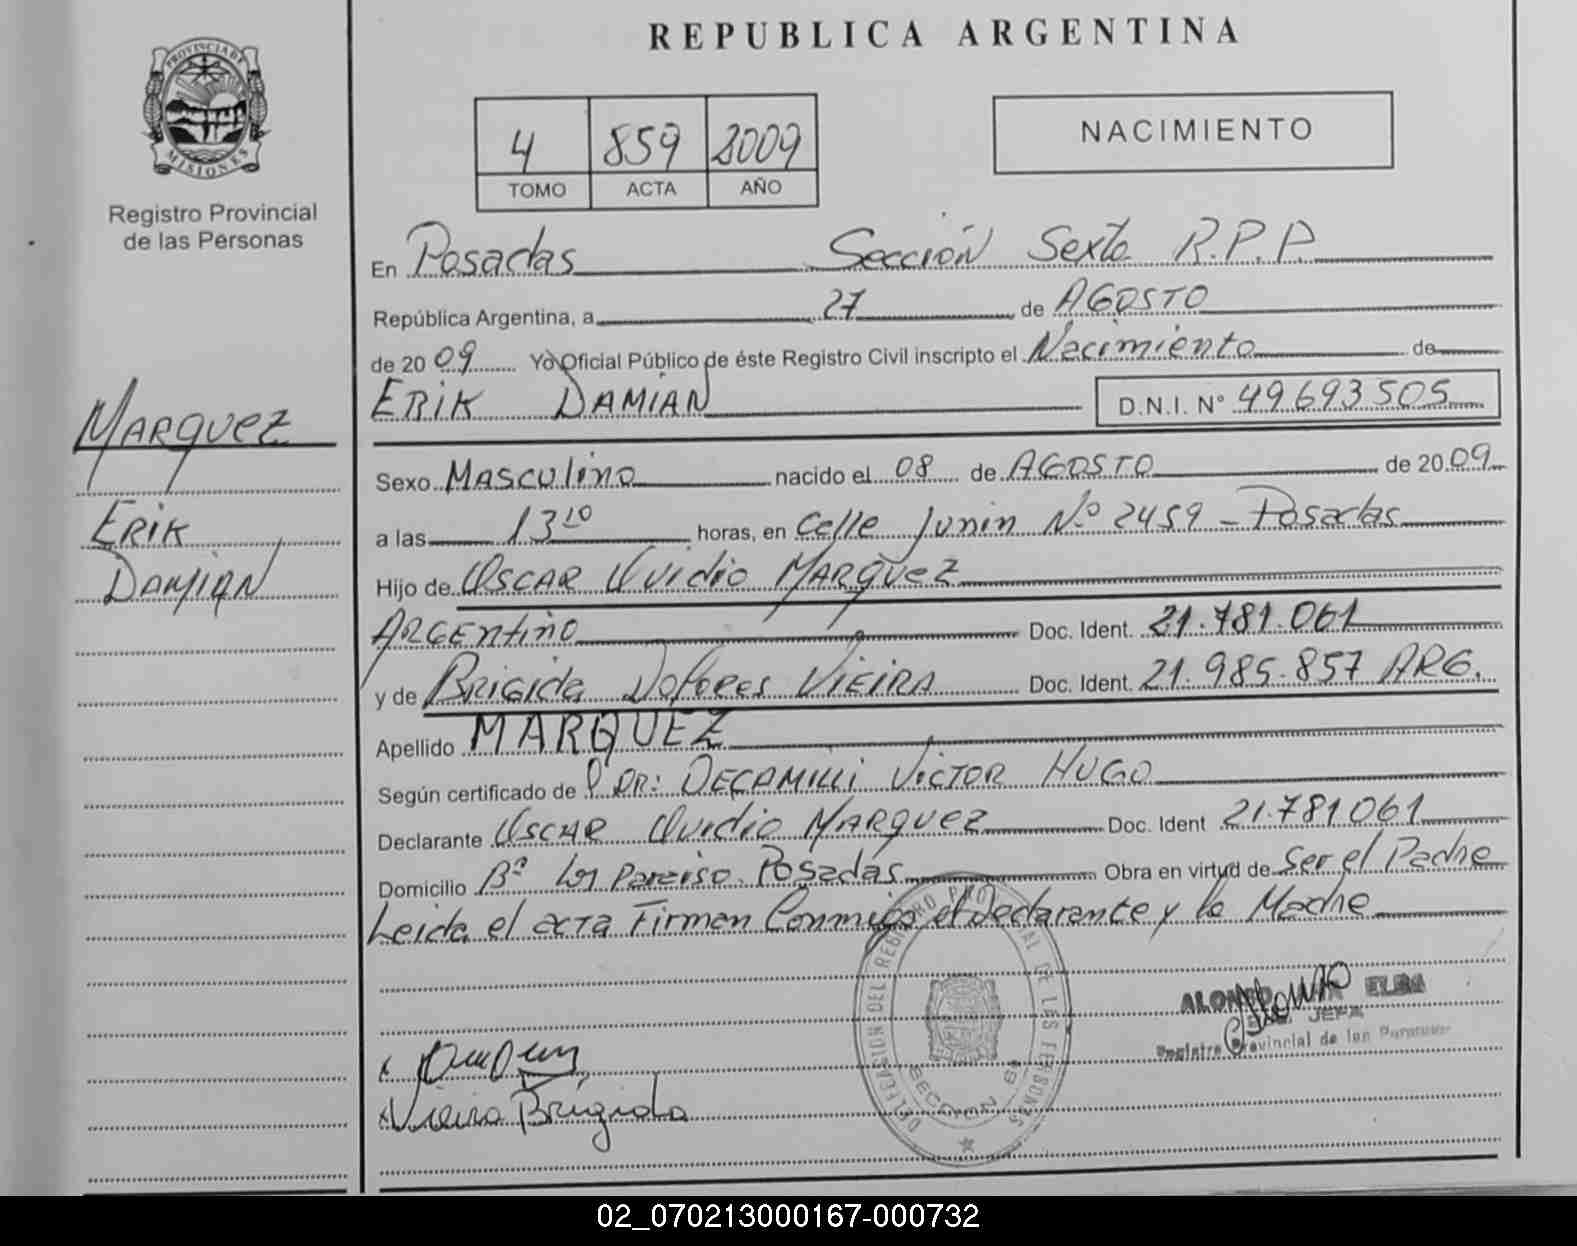 REPUBLICA ARGENTINA
PROVINCIA DE
MISIONES
Registro Provincial
de las Personas
4 859 2009
TOMO ACTA AÑO
NACIMIENTO
En Posadas Sección Sexta R.P.P.
República Argentina, a 27 de AGOSTO
de 2009 Yo Oficial Público de éste Registro Civil inscripto el Nacimiento de
ERIK DAMIAN D.N.I. N° 49693505
MARQUEZ
ERIK
DAMIAN
Sexo Masculino nacido el 08 de AGOSTO de 2009
a las 13 10 horas, en Calle Junin N° 2459 - Posadas
Hijo de OSCAR Ovidio MARQUEZ
ARGENTINO Doc. Ident. 21.781.061
y de BRIGIDA Dolores VIEIRA Doc. Ident. 21.985.857 ARG.
Apellido MARQUEZ
Según certificado de P DR: DECAMILLI VICTOR HUGO
Declarante OSCAR Ovidio MARQUEZ Doc. Ident 21.781061
Domicilio B° Los Paraiso. Posadas Obra en virtud de Ser el Padre
Leida el acta Firman Conmigo el Declarante y la Madre
DELEGACION DEL REGISTRO PROVINCIAL DE LAS PERSONAS
SECCION 6a
ALONSO ELBA
JEFA
Registro Provincial de las Personas
x Vieira Brígida
02_070213000167-000732